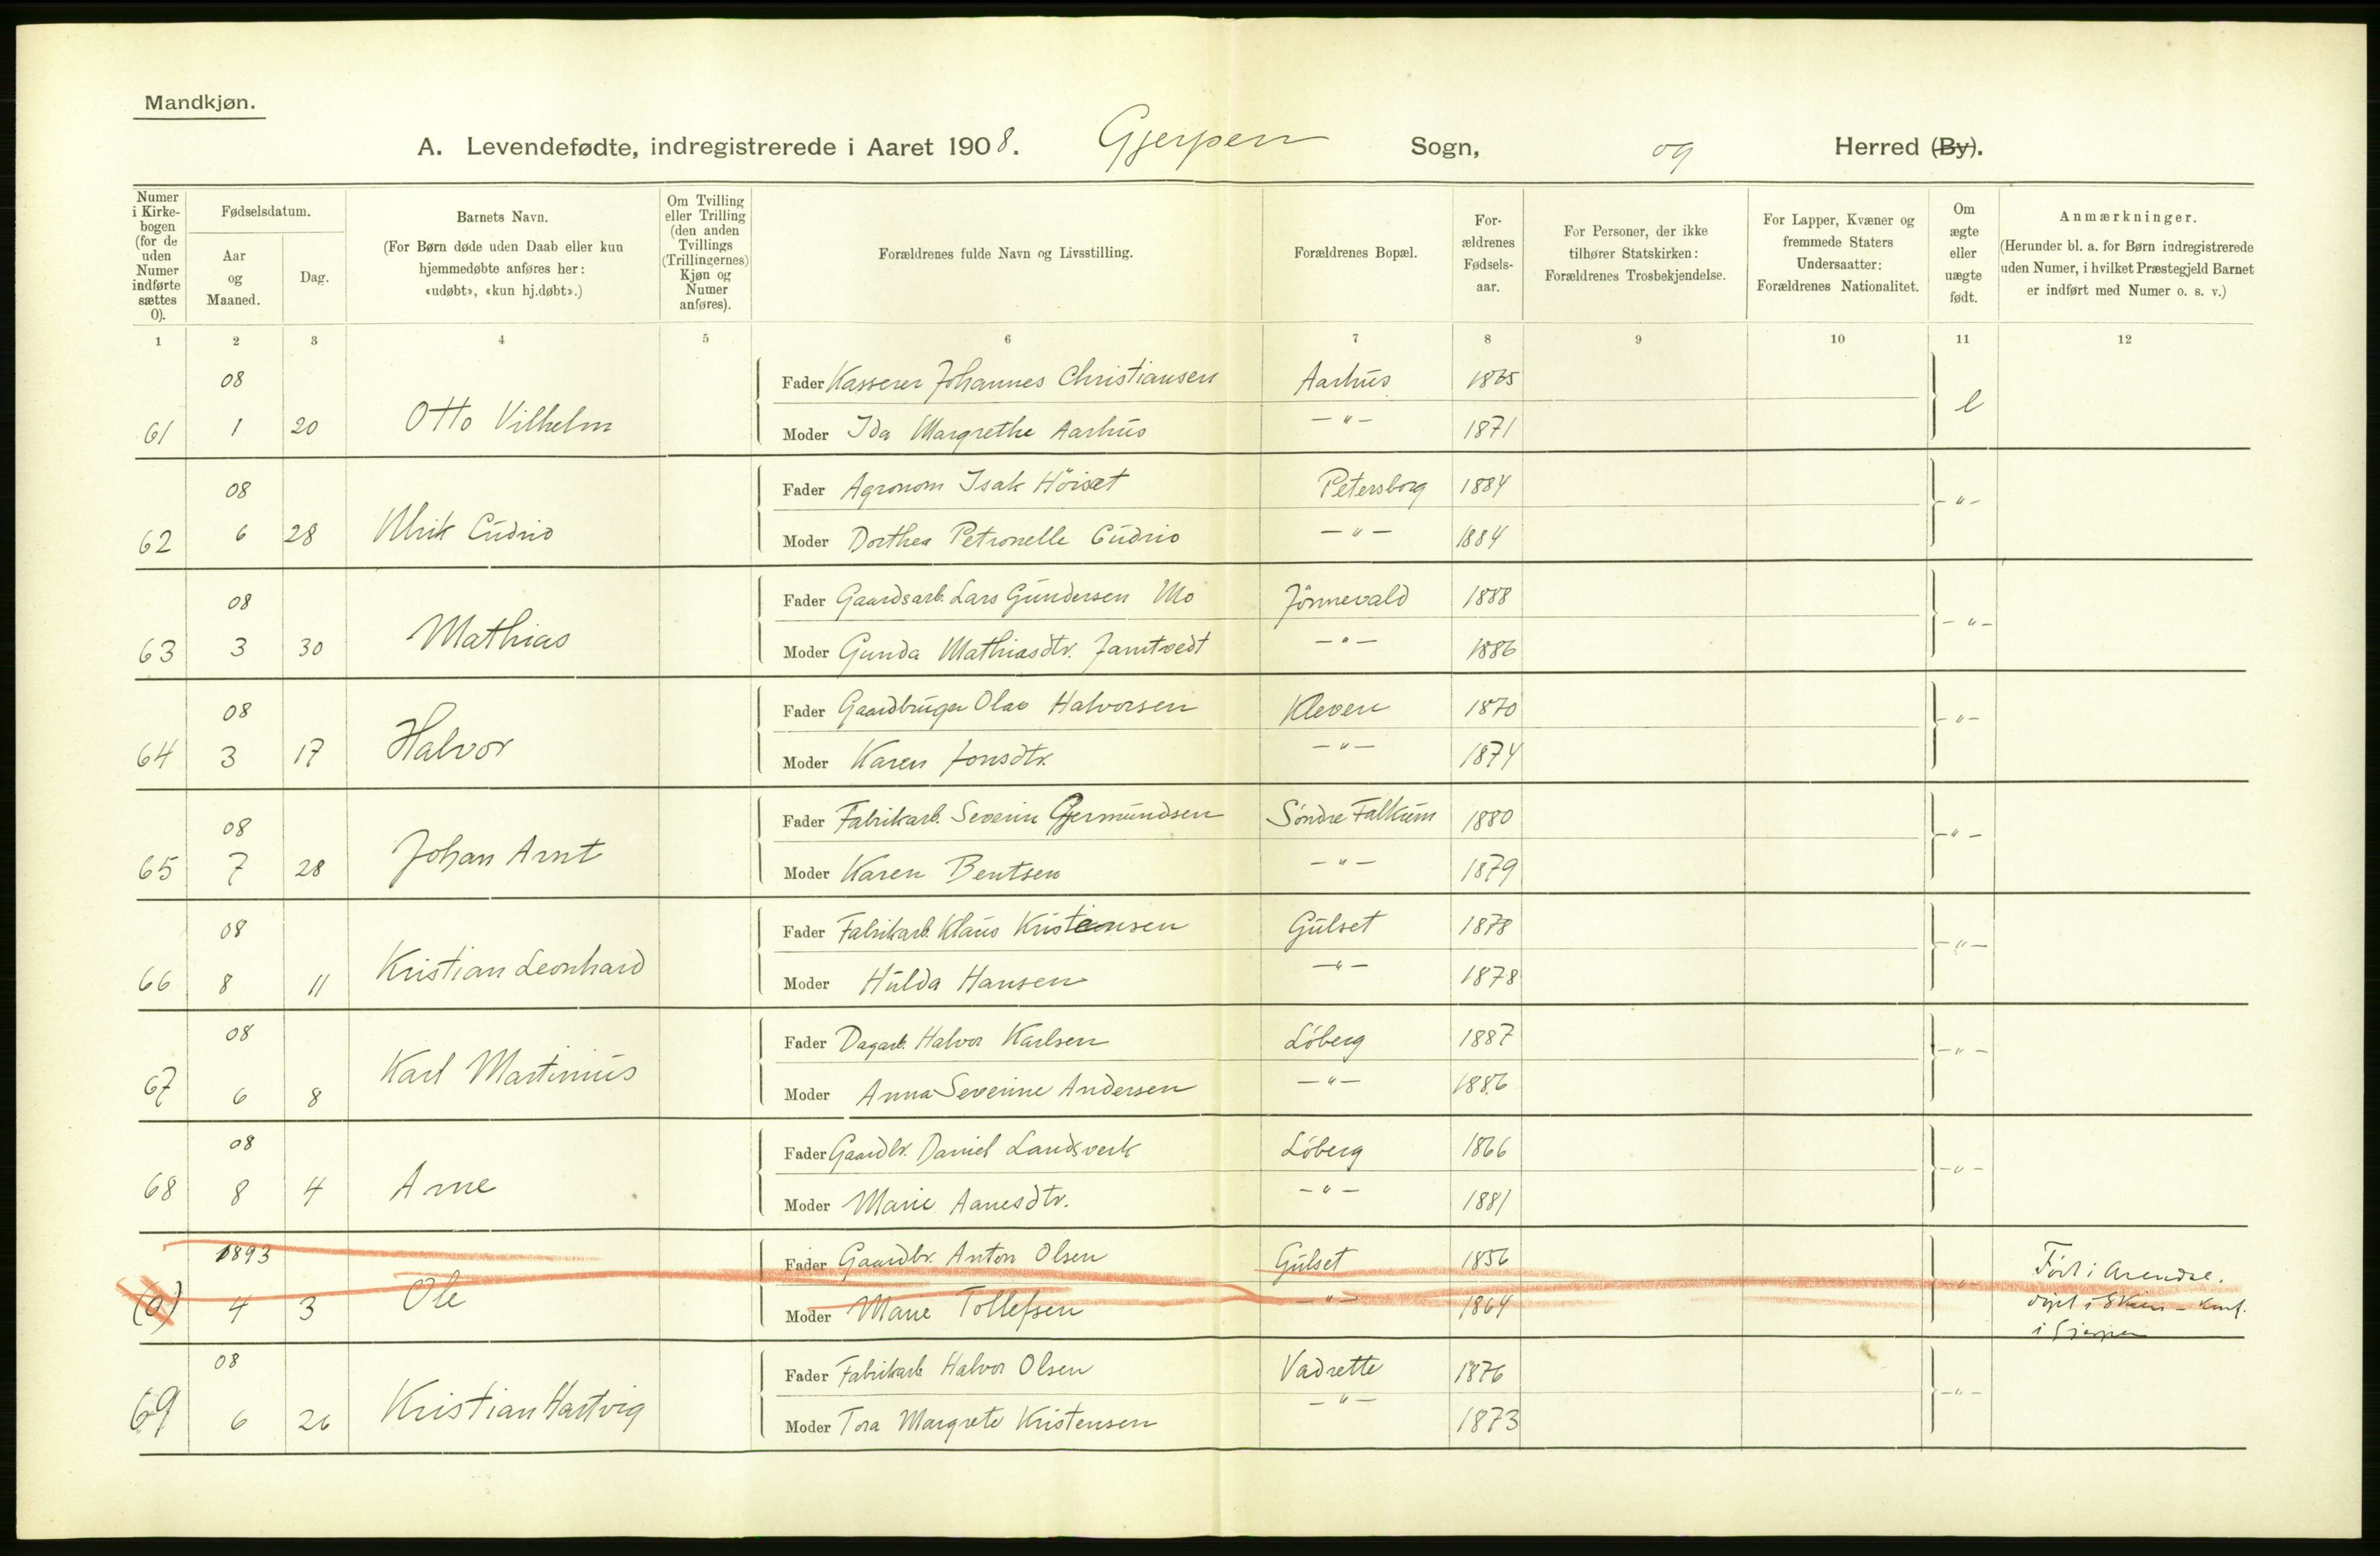 Mandkjøn.
A. Levendefødte, indregistrerede i Aaret 1908. Gjerpen Sogn, og Herred (By).
Numer i Kirke-bogen (for de uden Numer indførte sættes 0).
Fødselsdatum.
Aar og Maaned.
Dag.
Barnets Navn.
(For Børn døde uden Daab eller kun hjemmedøbte anføres her: «udøbt», «kun hj.døbt».)
Om Tvilling eller Trilling (den anden Tvillings (Trillingernes) Kjøn og Numer anføres).
Forældrenes fulde Navn og Livsstilling.
Forældrenes Bopæl.
For-ældrenes Fødsels-aar.
For Personer, der ikke tilhører Statskirken: Forældrenes Trosbekjendelse.
For Lapper, Kvæner og fremmede Staters Undersaatter: Forældrenes Nationalitet.
Om ægte eller uægte født.
Anmærkninger.
(Herunder bl. a. for Børn indregistrerede uden Numer, i hvilket Præstegjeld Barnet er indført med Numer o. s. v.)
1 2 3 4 5 6 7 8 9 10 11 12
08 Fader Kasserer Johannes Christiansen Aarhus 1865
61 1 20 Otto Vilhelm Moder Ida Margrethe Aarhus — " — 1871 e
08 Fader Agronom Isak Höisæt Petersborg 1884
62 6 28 Ulrik Cudrio Moder Dorthea Petronelle Cudrio — " — 1884 - " -
08 Fader Gaardsarb. Lars Gundersen Mo Jönnevald 1888
63 3 30 Mathias Moder Gunda Mathiasdtr. Jamtvedt — " — 1886 - " -
08 Fader Gaardbruger Olav Halvorsen Kleven 1870
64 3 17 Halvor Moder Karen Jonsdtr. — " — 1874 - " -
08 Fader Fabrikarb. Severin Gjermundsen Søndre Falkum 1880
65 7 28 Johan Arnt Moder Karen Bentsen — " — 1879 - " -
08 Fader Fabrikarb. Klaus Kristensen Gulset 1878
66 8 11 Kristian Leonhard Moder Hulda Hansen — " — 1878 - " -
08 Fader Dagarb. Halvor Karlsen Löberg 1887
67 6 8 Karl Martinius Moder Anna Severine Andersen — " — 1886 - " -
08 Fader Gaardbr. Daniel Landsverk Löberg 1866
68 8 4 Arne Moder Marie Aanesdtr. — " — 1881 - " -
1893 Fader Gaardbr. Anton Olsen Gulset 1856 Född i Arendal.
(0) 4 3 Ole Moder Marie Tollefsen — " — 1864 - " - döpt i Skien – konf.
i Gjerpen
08 Fader Fabrikarb. Halvor Olsen Vadrette 1876
69 6 26 Kristian Hartvig Moder Tora Margrete Kristensen — " — 1873 - " -